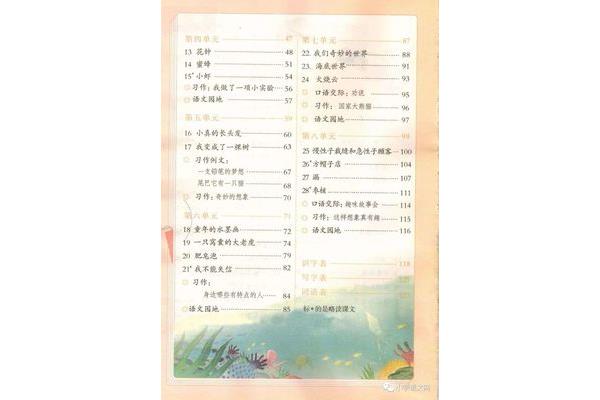 第四单元 47
13 花钟 48
14 蜜蜂 51
15* 小虾 54
习作：我做了一项小实验 56
语文园地 57
第五单元 59
16 小真的长头发 60
17 我变成了一棵树 63
习作例文：
一支铅笔的梦想 67
尾巴它有一只猫 68
习作：奇妙的想象 70
第六单元 71
18 童年的水墨画 72
19 一只窝囊的大老虎 74
20 肥皂泡 79
21* 我不能失信 82
习作：
身边那些有特点的人 84
语文园地 85
第七单元 87
22. 我们奇妙的世界 88
23. 海底世界 91
24 火烧云 93
口语交际：劝说 95
习作：国家大熊猫 96
语文园地 97
第八单元 99
25 慢性子裁缝和急性子顾客 100
26* 方帽子店 104
27 漏 107
28* 枣核 111
口语交际：趣味故事会 114
习作：这样想象真有趣 115
语文园地 116
识字表 118
写字表
词语表
标*的是略读课文
小学语文网